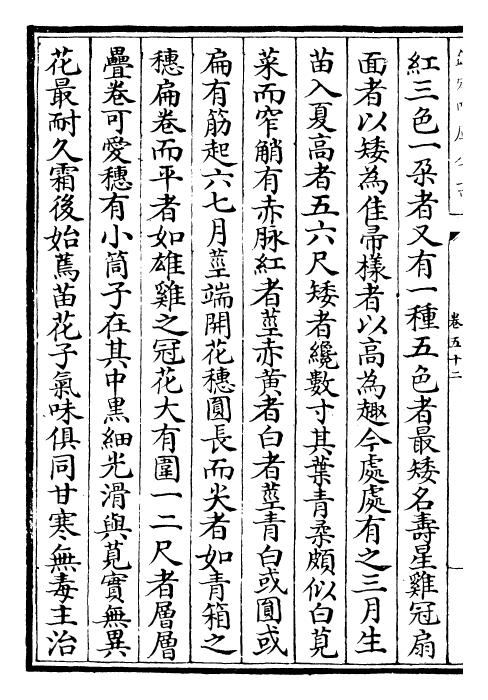 紅三色一朶者又有一種五色者最矮名壽星雞冠扇
面者以矮為佳帚樣者以高為趣今處處有之三月生
苗入夏高者五六尺矮者纔數寸其葉青柔頗似白莧
菜而窄觕有赤脉紅者莖赤黄者白者莖青白或圓或
扁有筋起六七月莖端開花穗圓長而尖者如青箱之
穗扁卷而平者如雄雞之冠花大有圍一二尺者層層
疊卷可愛穗有小筒子在其中黒細光滑與莧實無異
花最耐久霜後始蔫苗花子氣味俱同甘寒無毒主治
卷五十二